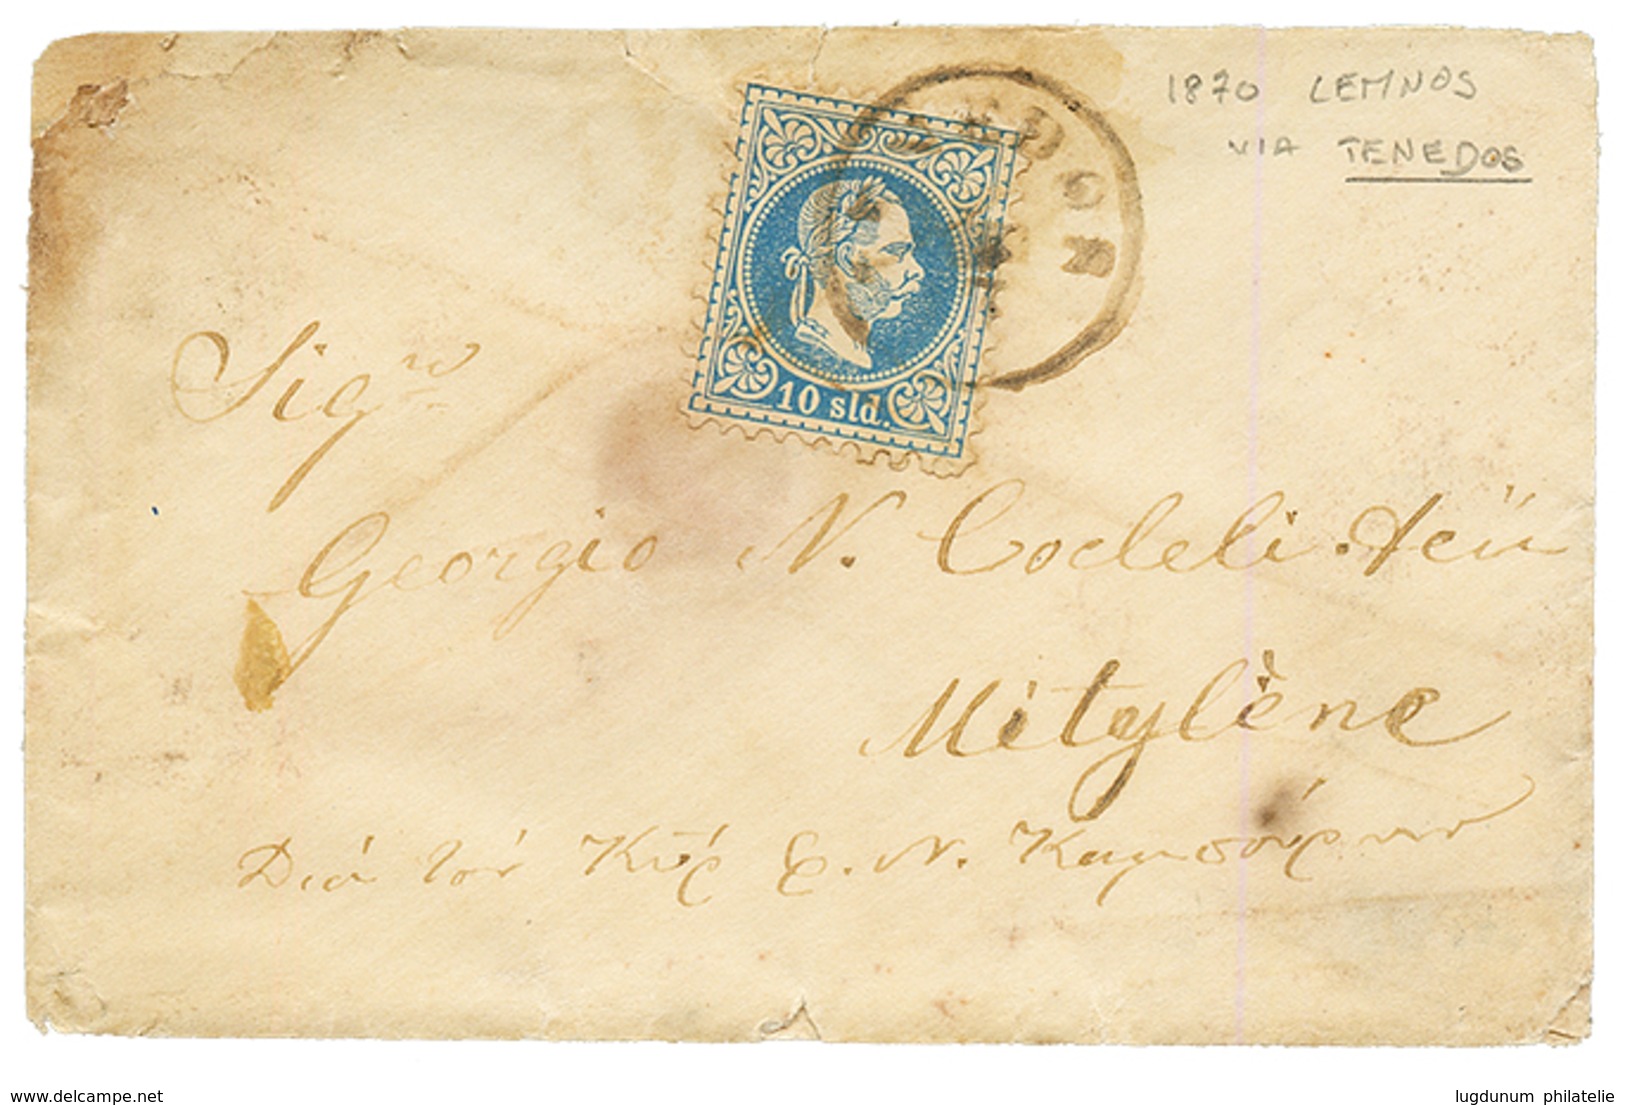 1870 LEMNOS
VIA TENEDOS
10 sld.
Sig.r
Georgio N. Codeli
Mitylène
Διά τον Κύρ
Ν.
www.delcampe.net
lugdunum philatelie